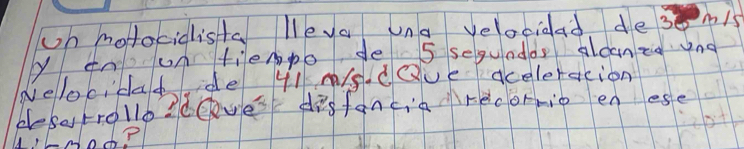 Un motociclista lleva una velocidad de 36 m/s
y en un tiempo de 5 segundos alcanza una
velocidad de 41 m/s. ¿Que aceleracion
desarrollo? ¿Qué distancia recorrio en ese
tiempo?